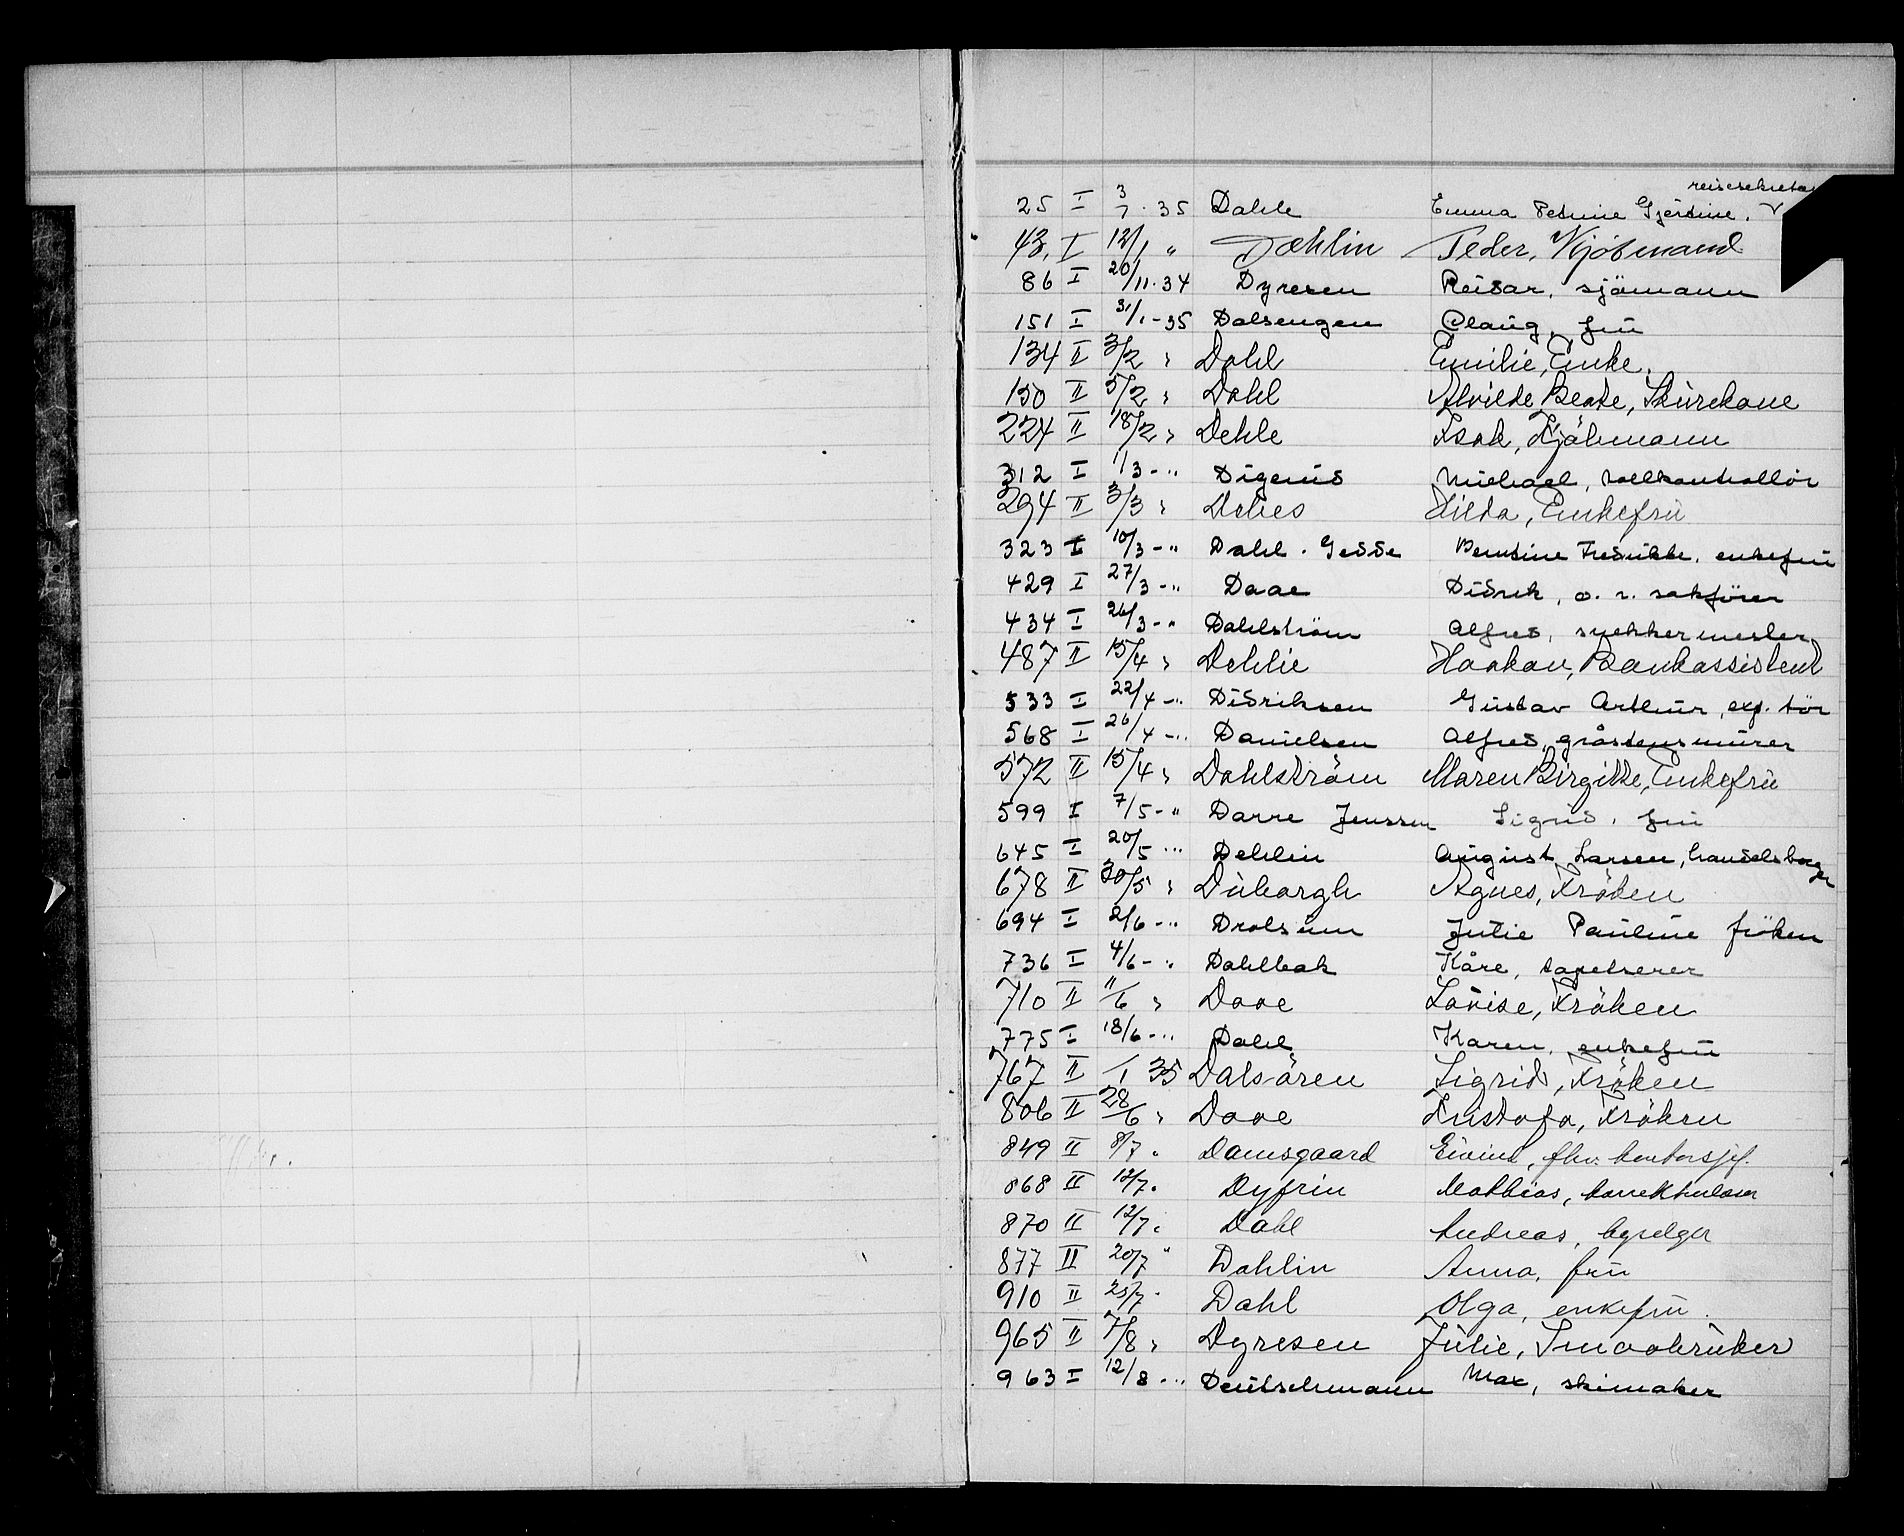 reisesekretær
25 I 3/1 . 35 Dahle Emma Petrine Gjertine.
43. I 12/1 " Dæhlin Peder, Kjøbmand
86 I 20/11. 34 Dyresen Reidar, sjömann
151 I 31/1 - 35 Dalsengen Olaug, frü
134 II 3/2 " Dahl Emilie, Enke.
150 II 5/2 " Dahl Alvilde Beate, Skürekone
224 II 18/2 " Dehle Isak, Kjöbmann
312 I 1/3 - " Digerüd Michael, tollkontrollör
294 II 3/3 " Dehes Hilda, Enkefrü
323 I 10/3 - " Dahl. Gedde Berntine Fredrikke, enkefrü
429 I 27/3 - " Daae Didrik, o. r. sakförer
434 I 26/3 - " Dahlström Alfred, snekkermester
487 II 15/4 " Dehlie Haakon, Bankassistent
533 I 22/4 - " Didriksen Güstav Arthür, exp. tör
568 I 26/4 - " Danielsen Alfred, gråstensmürer
572 II 15/4 " Dahlström Maren Birgitte, Enkefrü
599 I 7/5 - " Darre Jenssen Sigrid, frü
645 I 20/5 - " Dehlin Aügüst Larsen, handelsborger
678 II 30/5 " Dübargh Agnes, Fröken
694 I 2/6 - " Drolsüm Jülie Paüline fröken
736 I 4/6 - " Dahlbak Kåre, tapetserer
710 II 11/6 " Daae Lovise, Fröken
775 I 18/6 - " Dahl Karen, enkefrü
767 II /1 35 Dalsören Sigrid, Fröken
806 II 28/6 " Daae Kristofa, Fröken
849 II 8/7 " Damsgaard Eivind, fhv. kontorsjef.
868 II 12/7 " Dyfrin Mathias,
870 II 12/7 " Dahl Andreas,
877 II 20/7 " Dahlin Anna, frü
910 II 25/7 " Dahl Olga, enkefrü.
965 II 7/8 " Dyresen Jülie, Smaabrüker
963 I 12/8 - " Deütschmann Max, skimaker